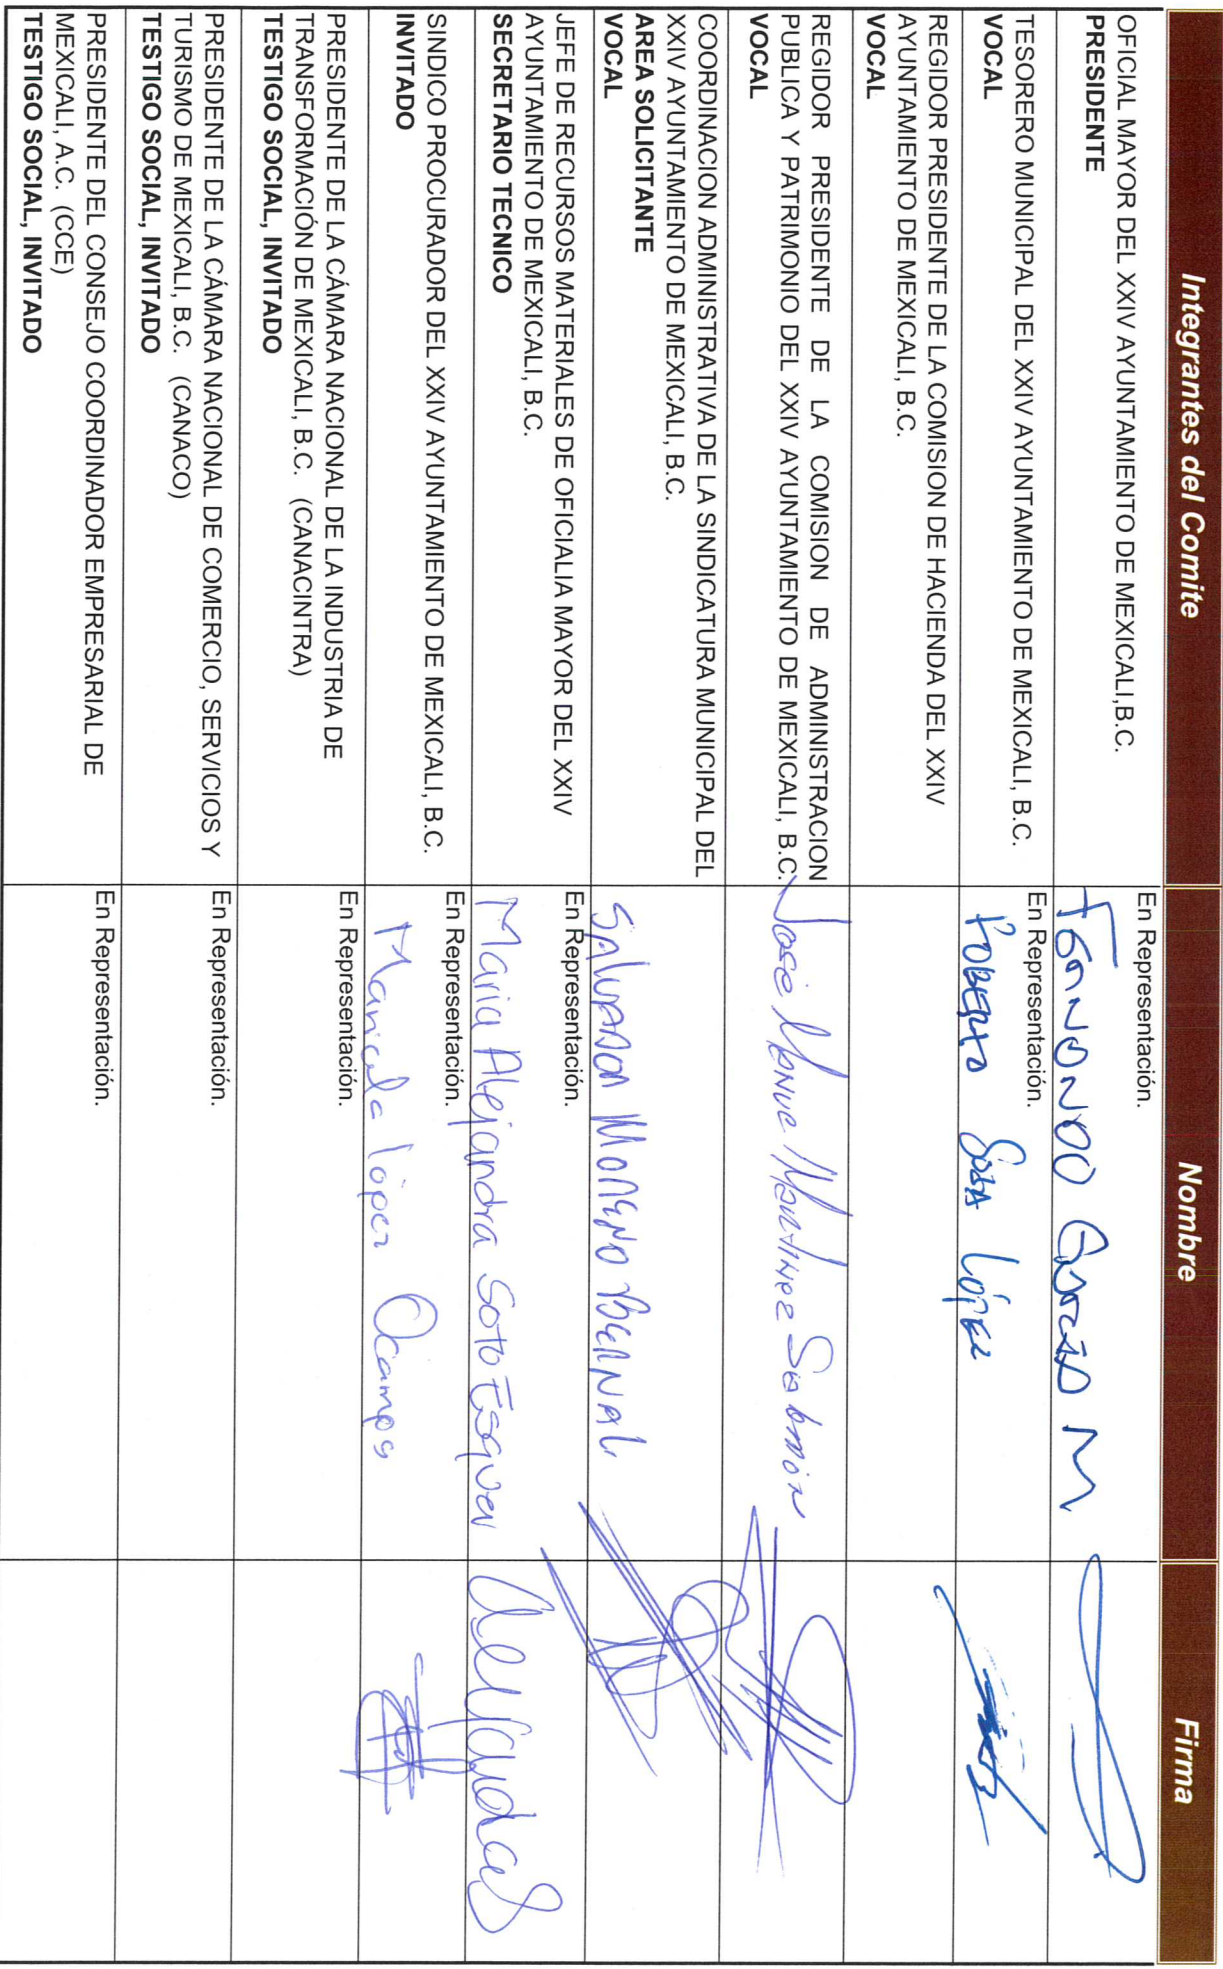 Integrantes del Comite Nombre Firma
OFICIAL MAYOR DEL XXIV AYUNTAMIENTO DE MEXICALI,B.C.
PRESIDENTE
En Representación.
FERNANDO GARCÍA M
TESORERO MUNICIPAL DEL XXIV AYUNTAMIENTO DE MEXICALI, B.C.
VOCAL
En Representación.
ROBERTO SOSA LÓPEZ
REGIDOR PRESIDENTE DE LA COMISION DE HACIENDA DEL XXIV
AYUNTAMIENTO DE MEXICALI, B.C.
VOCAL
REGIDOR PRESIDENTE DE LA COMISION DE ADMINISTRACION
PUBLICA Y PATRIMONIO DEL XXIV AYUNTAMIENTO DE MEXICALI, B.C.
VOCAL
José Manue Martinez
COORDINACION ADMINISTRATIVA DE LA SINDICATURA MUNICIPAL DEL
XXIV AYUNTAMIENTO DE MEXICALI, B.C.
AREA SOLICITANTE
VOCAL
SALVADOR MORENO BERNAL
JEFE DE RECURSOS MATERIALES DE OFICIALIA MAYOR DEL XXIV
AYUNTAMIENTO DE MEXICALI, B.C.
SECRETARIO TECNICO
En Representación.
Maria Alejandra Soto Esquer
SINDICO PROCURADOR DEL XXIV AYUNTAMIENTO DE MEXICALI, B.C.
INVITADO
En Representación.
Maricela López Ocampo
PRESIDENTE DE LA CÁMARA NACIONAL DE LA INDUSTRIA DE
TRANSFORMACIÓN DE MEXICALI, B.C. (CANACINTRA)
TESTIGO SOCIAL, INVITADO
En Representación.
PRESIDENTE DE LA CÁMARA NACIONAL DE COMERCIO, SERVICIOS Y
TURISMO DE MEXICALI, B.C. (CANACO)
TESTIGO SOCIAL, INVITADO
En Representación.
PRESIDENTE DEL CONSEJO COORDINADOR EMPRESARIAL DE
MEXICALI, A.C. (CCE)
TESTIGO SOCIAL, INVITADO
En Representación.